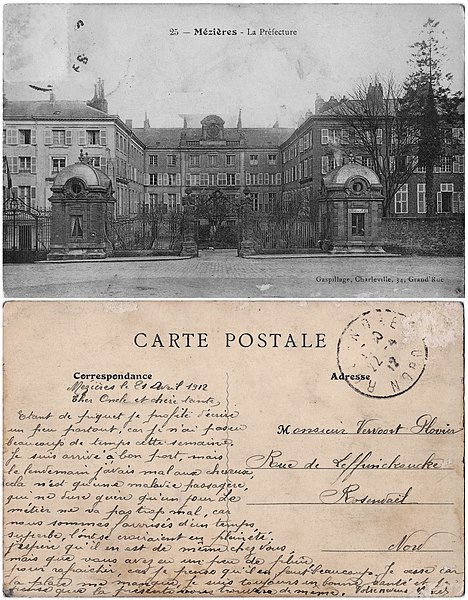 25 — Mézières - La Préfecture
Gaspillage, Charleville, 34, Grand'Rue
CARTE POSTALE
Correspondance
Adresse
Mézières le 21 Avril 1912
Cher Oncle et chère tante,
Etant de piquet je profite d'écrire
un peu partout, car je n'ai pas eu
beaucoup de temps cette semaine.
Je suis arrivé à bon port, mais
le lendemain j'avais mal aux cheveux,
cela n'est qu'une maladie passagère,
qui ne dure guère qu'un jour. Le
métier ne va pas trop mal, car
nous sommes favorisés d'un temps
superbe, l'on se croiraient en plein été.
J'espère qu'il en est de même chez vous
mais que vous avez eu un peu de pluie
pour rapaicier, car je pense qu'il en faut beaucoup. Je cesse car
la place me manque, je suis toujours en bonne santé et j'
que la présente vous trouvera de même. Votre neveu
Monsieur Vervoort Plovier
Rue de Leffrinckoucke
Rosendaël
Nord
22 - 4
12
NORD